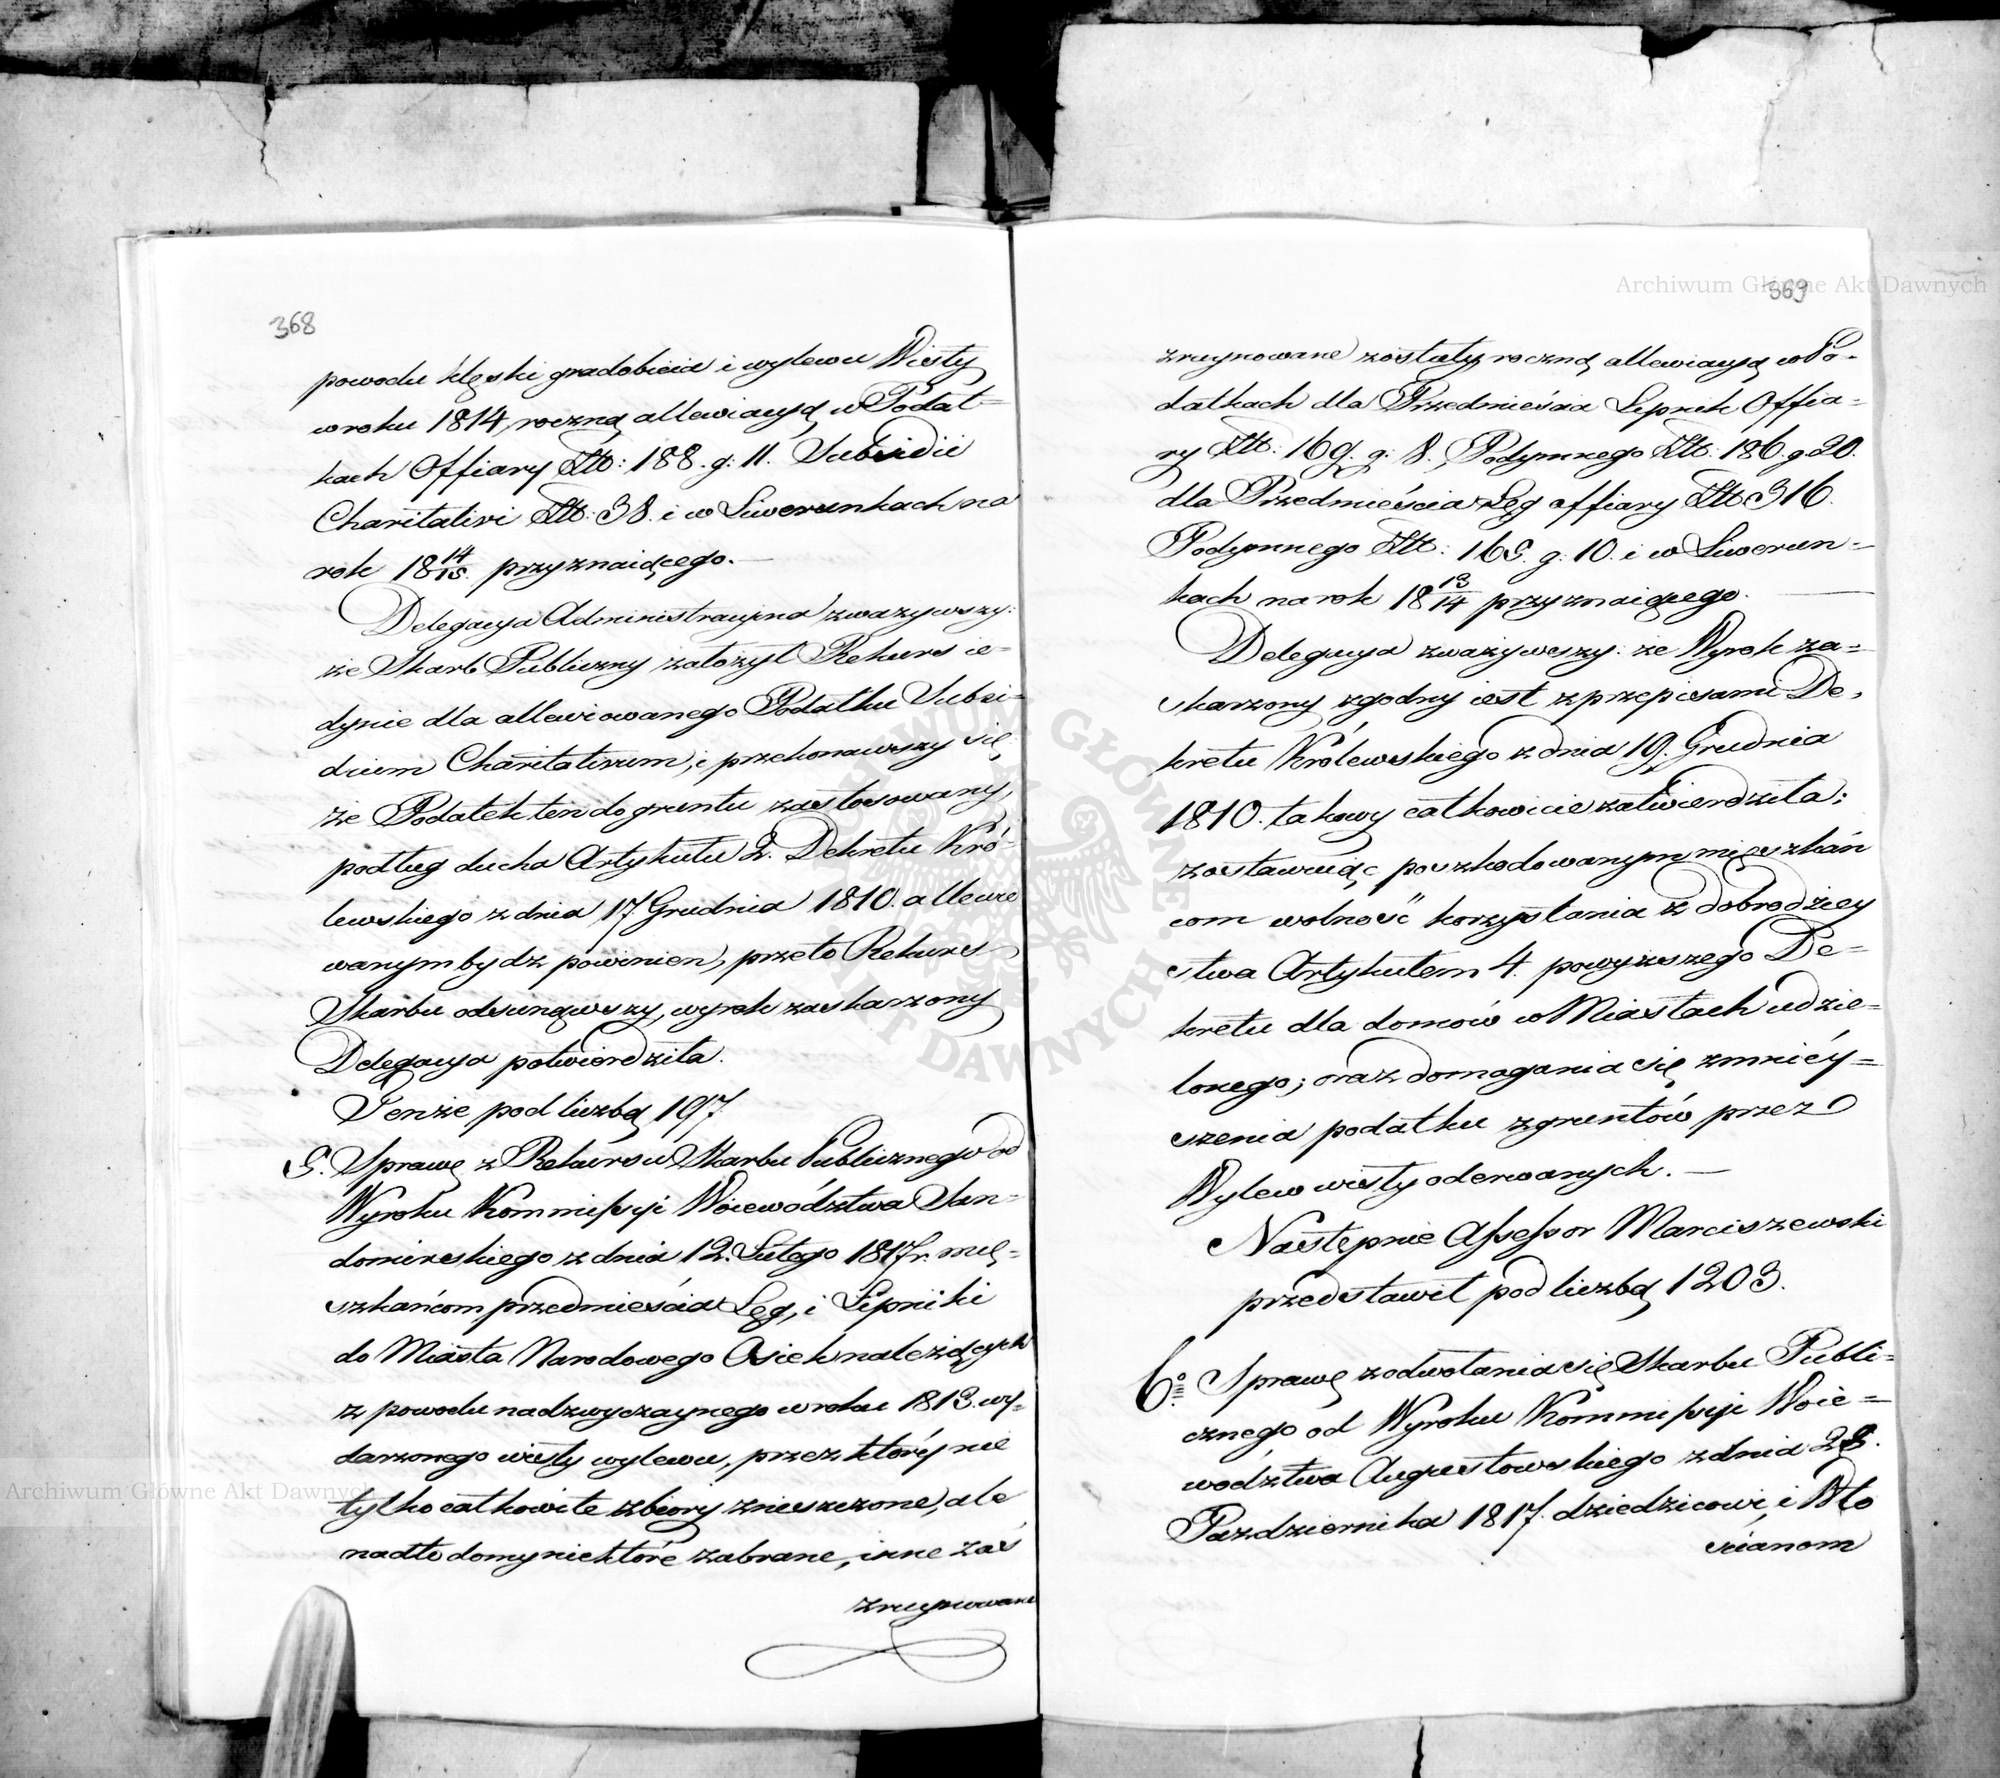 368
powodu klęski gradobicia i wylewu Wisły
w roku 1814, roczną allewiacyą w Podat=
kach Offiary Złt: 188. g: 11. Subsidii
Charitativi Złt: 38. i w Liwerunkach na
rok 18 14/15. przyznaiącego. —
Delegacya Administracyjna zważywszy:
że Skarb Publiczny założył Rekurs ie=
dynie dla allewiowanego Podatku Subsi=
dium Charitativum, i przekonawszy się
że Podatek ten do gruntu zastosowany,
podług ducha Artykułu 2. Dekretu Kró=
lewskiego z dnia 17 Grudnia 1810. allewio
wanym bydz powinien, przeto Rekurs
Skarbu odsunąwszy, wyrok zaskarzony
Delegacya potwierdziła.
Tenże pod liczbą 197.
5. Sprawę z Rekursu Skarbu Publicznego od
Wyroku Kommissyi Woiewództwa San=
domirskiego z dnia 12. Lutego 1817 r. mię=
szkańcom przedmieścia Łęg, i Lipniki
do Miasta Narodowego Osiek należących
z powodu nadzwyczaynego w roku 1813. wy=
darzonego wisły wylewu, przez który nie
tylko całkowite zbiory zniszczone, ale
nadto domy niektóre zabrane, inne zaś
zruynowane
369
zruynowane zostały, roczną allewiacyą w Po=
datkach dla Przedmieścia Lipnik Offia=
ry Złt: 169. g: 8., Podymnego Złt: 186. g. 20.
dla Przedmieścia Łęg offiary Złt 316.
Podymnego Złt: 165. g: 10. i w Liwerun=
kach na rok 18 13/14 przyznaiącego. —
Delegacya zważywszy: że Wyrok za=
skarzony zgodny iest z przepisami De=
kretu Królewskiego z dnia 19. Grudnia
1810. takowy całkowicie zatwierdziła;
zostawuiąc poszkodowanym mieszkań
com wolność korzystania z dobrodziey
stwa Artykułem 4. powyższego De=
kretu dla domów w Miastach udzie=
lonego; oraz domagania się zmniéy=
szenia podatku z gruntów przez
Wylew wisły oderwanych. —
Następnie Assessor Marciszewski
przedstawił pod liczbą 1203.
6o Sprawę z odwołania się Skarbu Publi=
cznego od Wyroku Kommissyi Woie=
wództwa Augustowskiego z dnia 28.
Pazdziernika 1817. dziedzicowi, i Wło
ścianom
Archiwum Główne Akt Dawnych
Archiwum Główne Akt Dawnych
ARCHIWUM GŁÓWNE AKT DAWNYCH